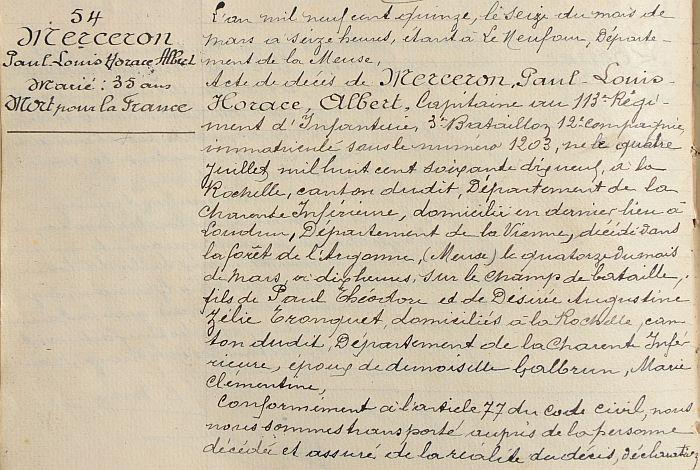 54
Merceron
Paul Louis Horace Albert
Marié : 35 ans
Mort pour la France
L'an mil neuf cent quinze, le seize du mois de
mars à seize heures, étant à Le Neufour, Départe-
ment de la Meuse,
Acte de décès de Merceron, Paul-Louis-
Horace, Albert, Capitaine au 113e Régi-
ment d'Infanterie, 3e Bataillon 12e Compagnie,
immatriculé sous le numéro 1203, né le quatre
Juillet mil huit cent soixante dix neuf, à la
Rochelle, canton dudit, Département de la
Charente Inférieure, domicilié en dernier lieu à
Loudun, Département de la Vienne, décédé dans
la forêt de l'Argonne, (Meuse) le quatorze du mois
de Mars, à dix heures, sur le champ de bataille,
fils de Paul Théodore et de Désirée Augustine
Zélie Tronquet, domiciliés à la Rochelle, can-
ton dudit, Département de la Charente Infé-
rieure, époux de demoiselle Galbrun, Marie
Clémentine,
Conformément à l'article 77 du Code civil, nous
nous sommes transporté auprès de la personne
décédée et assuré de la réalité du décès,